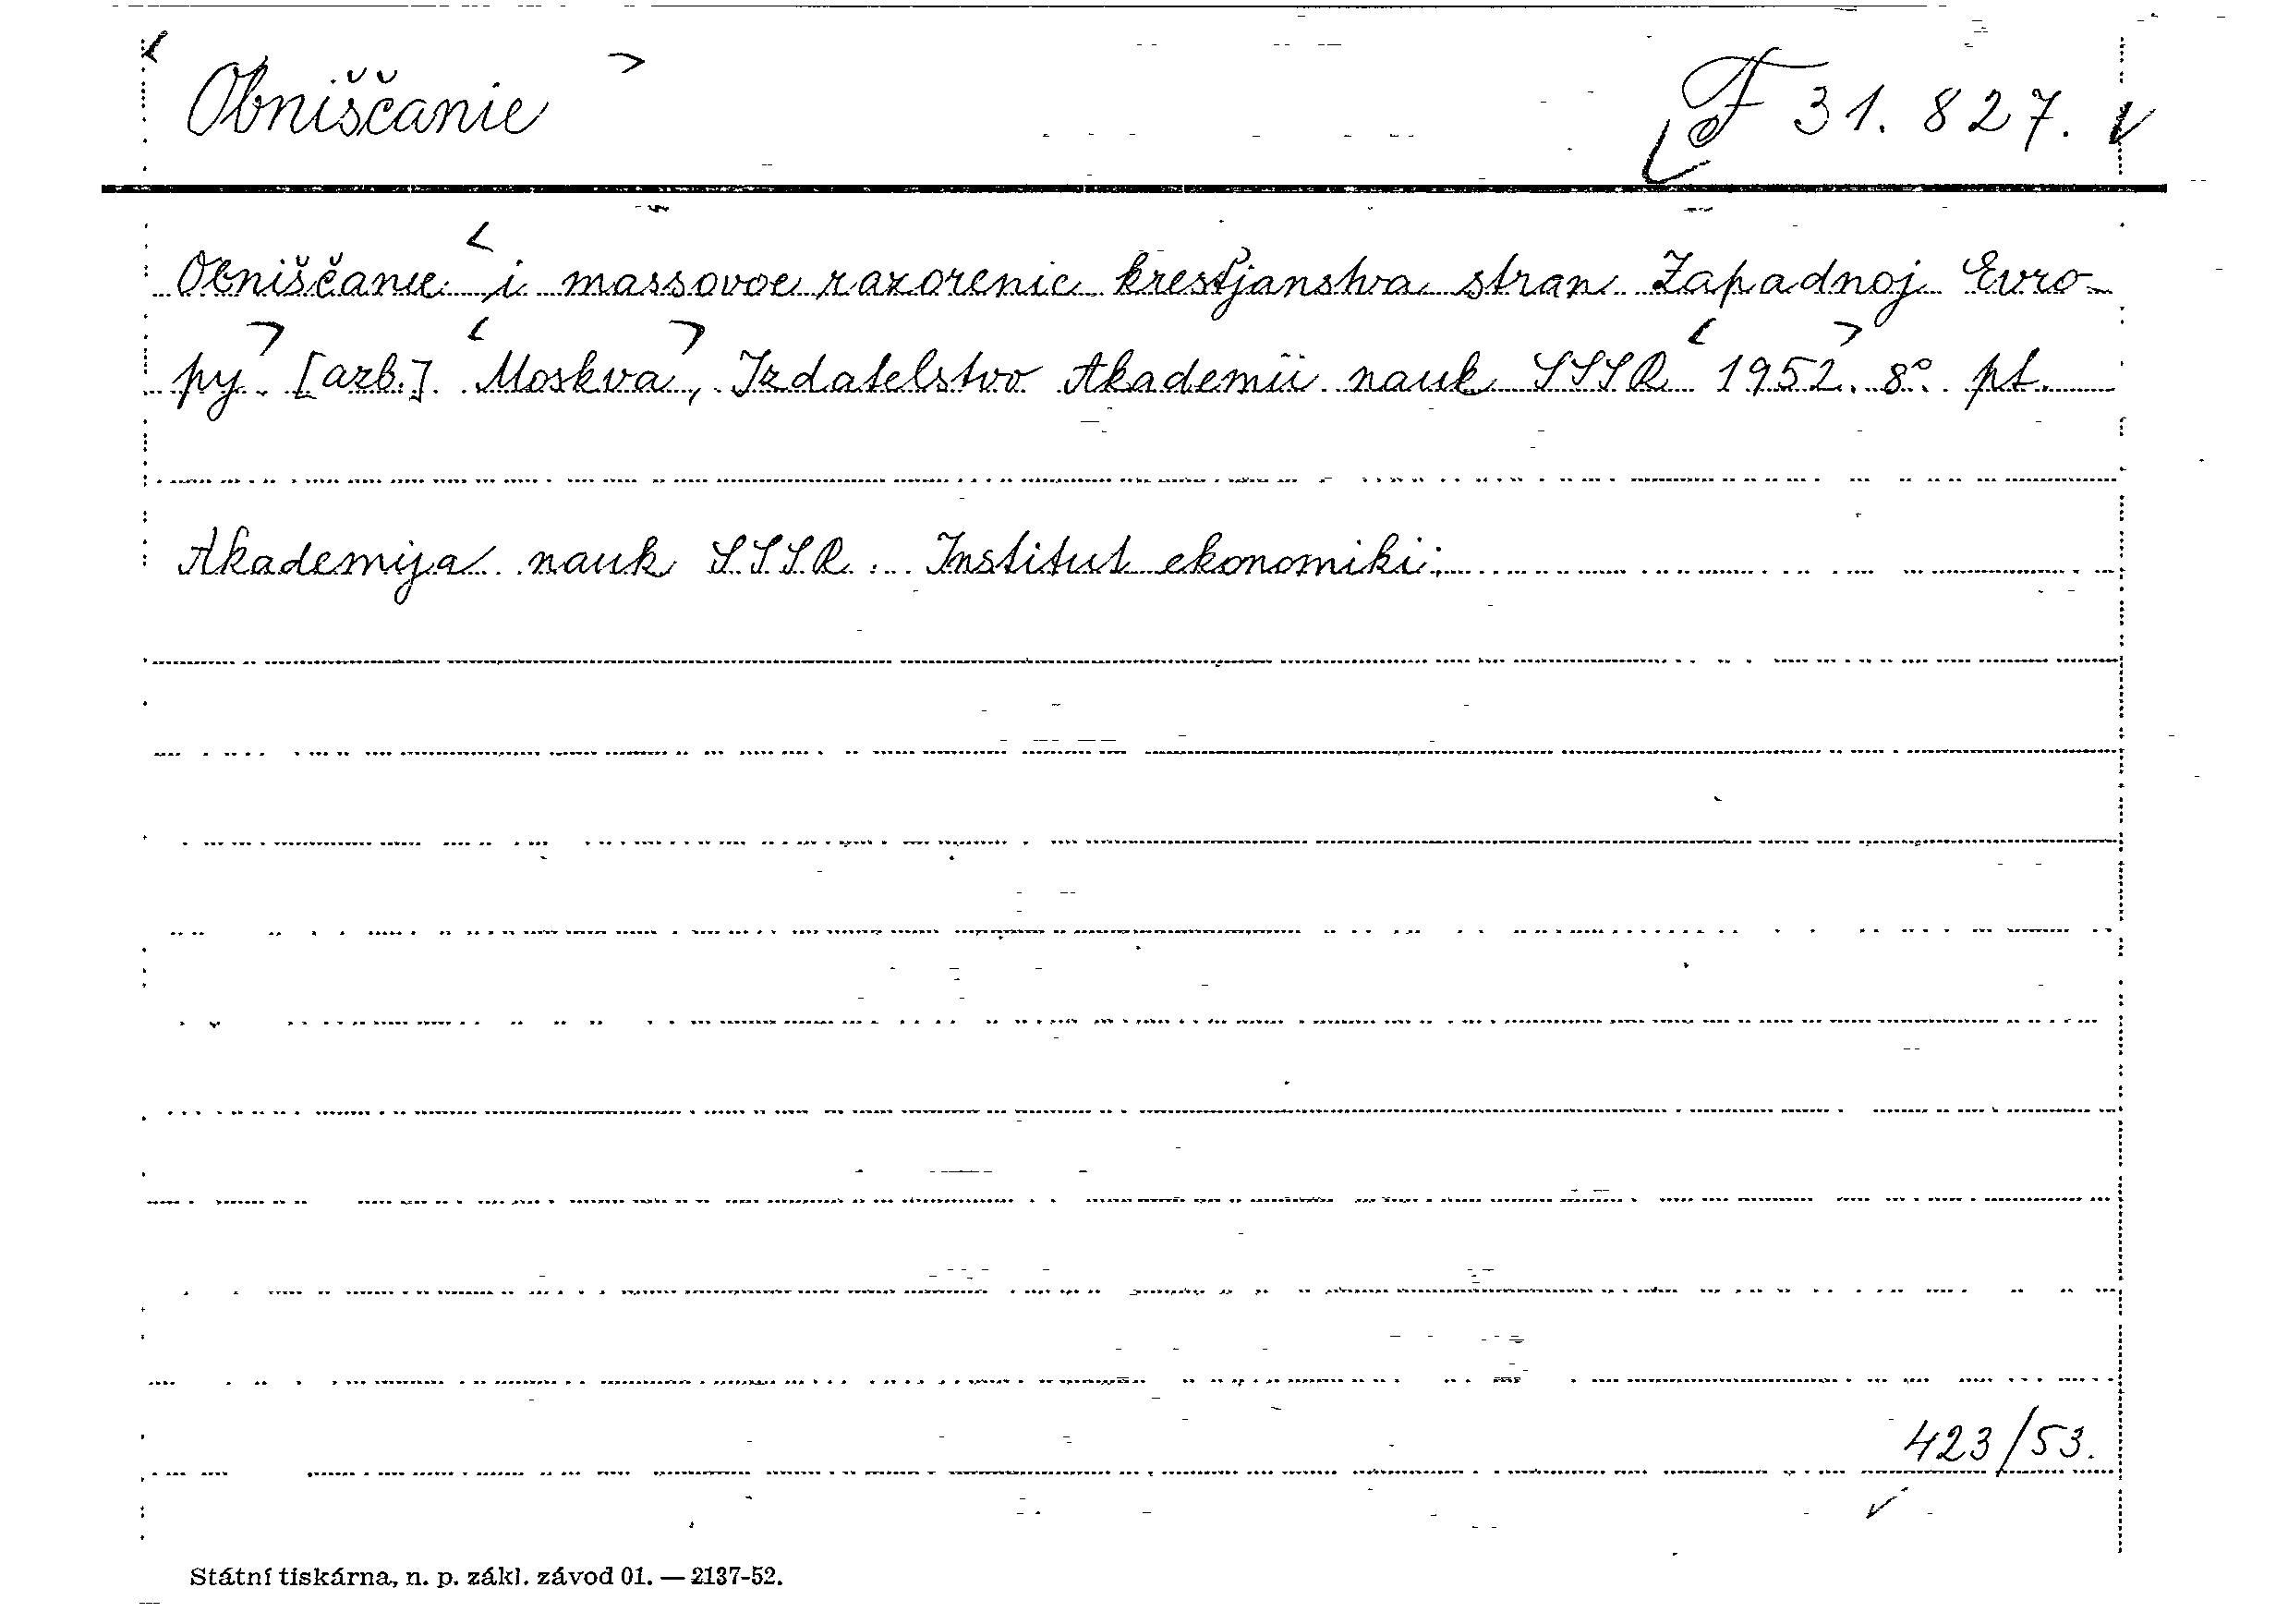 Obniščanie F 31.827.
Obniščanie i massovoe razorenie krestjanstva stran Zapadnoj Evro-
py [azb.]. Moskva, Izdatelstvo Akademii nauk SSSR 1952. 8°. pt.
Akademija nauk SSSR. Institut ekonomiki.
423/53.
Státní tiskárna, n. p. zákl. závod 01. — 2137-52.